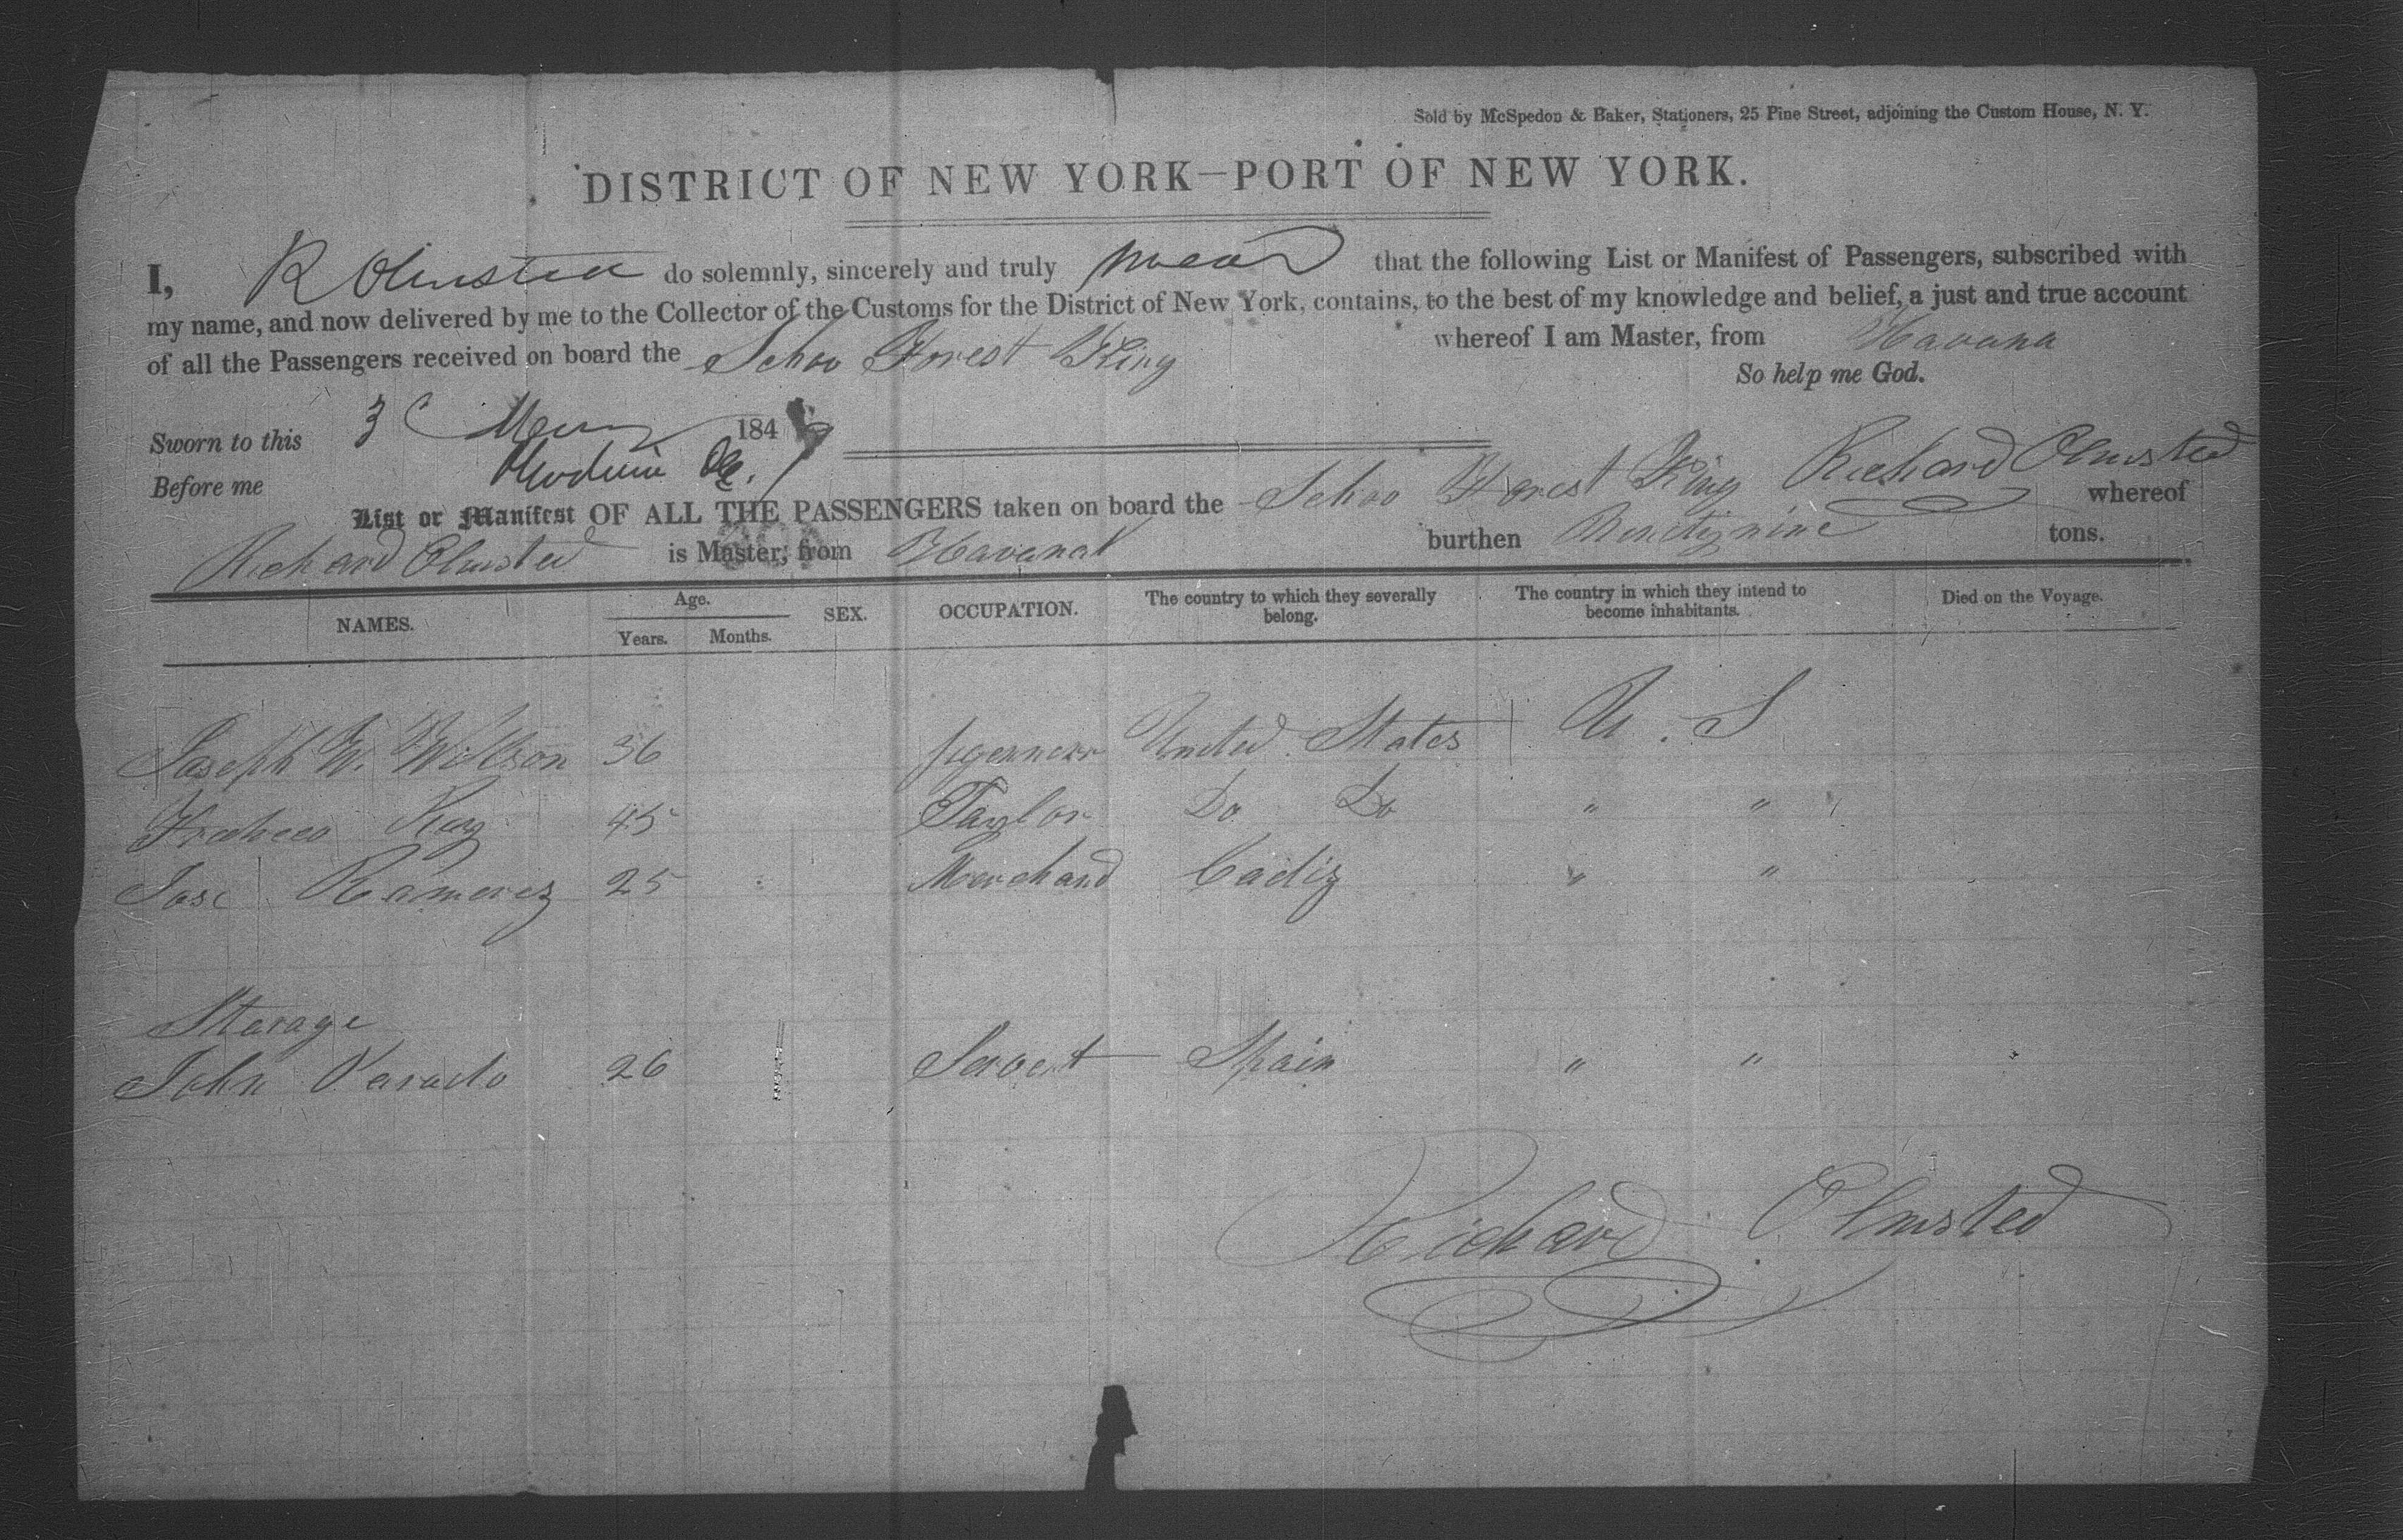 Sold by McSpedon & Baker, Stationers, 25 Pine Street, adjoining the Custom House, N. Y.
DISTRICT OF NEW YORK—PORT OF NEW YORK.
I, R Olmsted do solemnly, sincerely and truly swear that the following List or Manifest of Passengers, subscribed with
my name, and now delivered by me to the Collector of the Customs for the District of New York, contains, to the best of my knowledge and belief, a just and true account
of all the Passengers received on board the Schoo Forest King whereof I am Master, from Havana
So help me God.
Sworn to this 3 184
Before me
Richard Olmsted
List or Manifest OF ALL THE PASSENGERS taken on board the Schoo Forest King whereof
Richard Olmsted is Master, from Havana burthen Ninetynine tons.
NAMES. Age. SEX. OCCUPATION. The country to which they severally belong. The country in which they intend to become inhabitants. Died on the Voyage.
Years. Months.
Joseph W. Willson 36 United States U. S
45 Taylor Do Do " "
Jose Ramerez 25 Merchand Cadiz " "
Starage
John 26 Servet Spain " "
Richard Olmsted